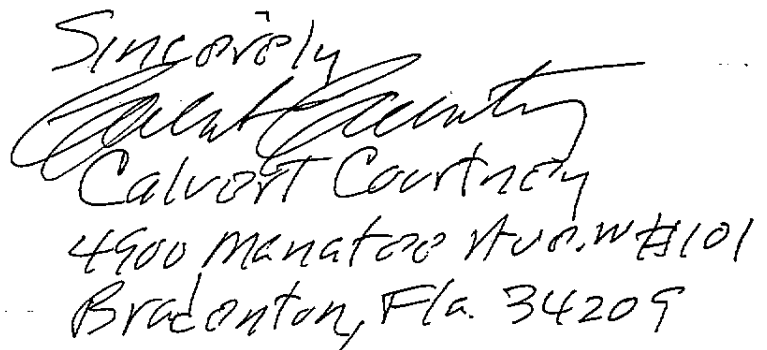 Sincerely
Calvert Courtney
Calvert Courtney
4900 Manatee Ave. W #101
Bradenton, Fla. 34209